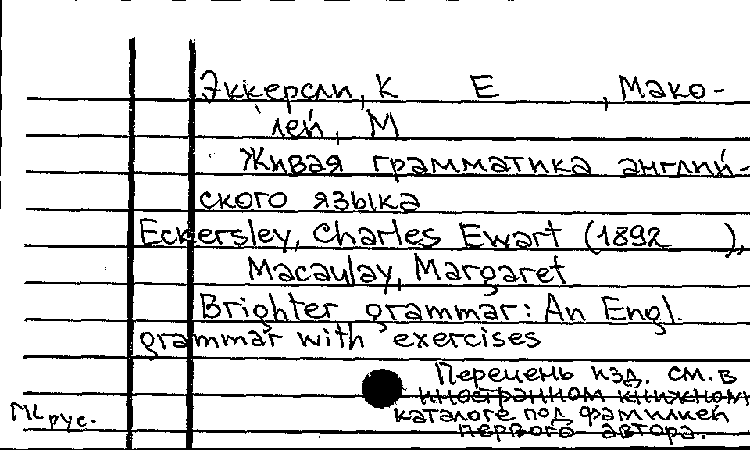 Эккерсли, К Е , Мако-
лей, М
Живая грамматика англий-
ского языка
Eckersley, Charles Ewart (1892 ),
Macaulay, Margaret
Brighter grammar: An Engl.
grammar with exercises
Перечень изд. см. в
иностранном книжном
каталоге под фамилией
первого автора.
рус.